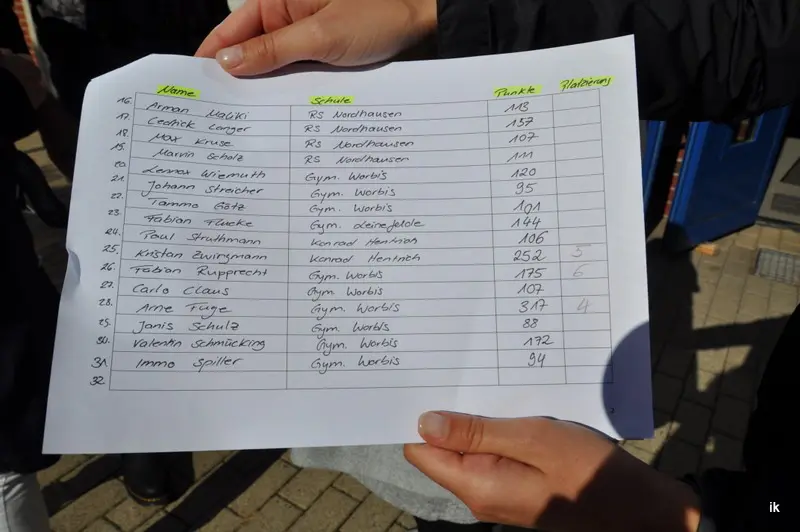 Name Schule Punkte Platzierung
16. Arman Maliki RS Nordhausen 113
17. Cedrick Langer RS Nordhausen 137
18. Max Kruse RS Nordhausen 107
19. Marvin Scholz RS Nordhausen 111
20. Lennox Wiemuth Gym. Worbis 120
21. Johann Streicher Gym. Worbis 95
22. Tammo Götz Gym. Worbis 101
23. Fabian Gym. Leinefelde 144
24. Paul Struthmann Konrad Hentrich 106
25. Kristan Zwingmann Konrad Hentrich 252 5
26. Fabian Rupprecht Gym. Worbis 175 6
27. Carlo Claus Gym. Worbis 107
28. Arne Füge Gym. Worbis 317 4
29. Janis Schulz Gym. Worbis 88
30. Valentin Schmücking Gym. Worbis 172
31. Immo Spiller Gym. Worbis 94
32.
ik